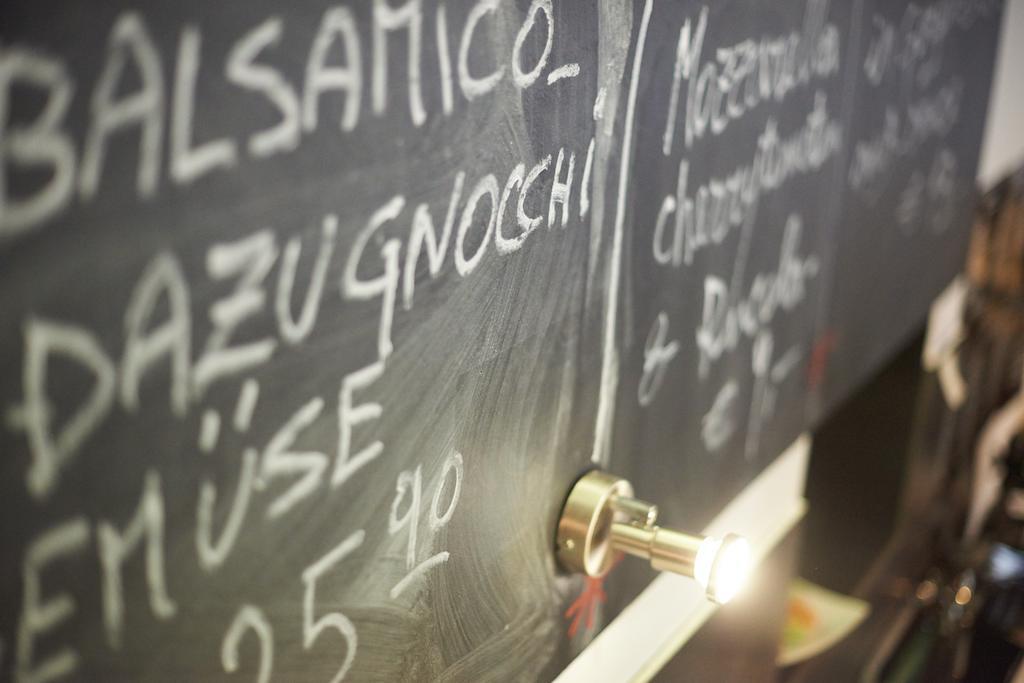 BALSAMICO_
DAZU GNOCCHI
EMÜSE
25 90
Mozzerella
cherrytomaten
& Rucola-
€ 9,-